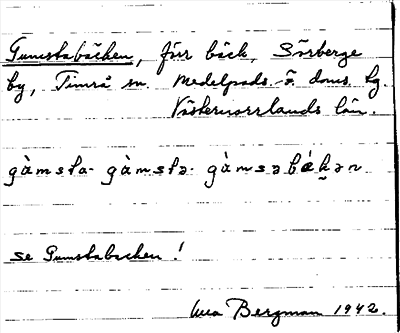 Gumstabäcken, förr bäck, Sörberge
by, Timrå sn. Medelpads ö. doms. hg.
Västernorrlands län.
gàmsta- gàmstə- gàmsəbækən
se Gumstabacken!
Bergman 1942.